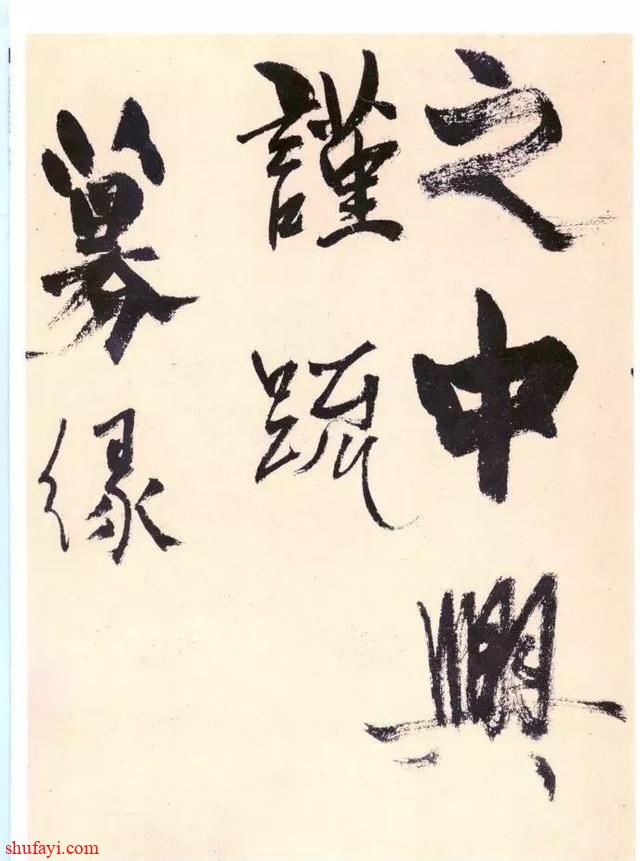 之中興
謹疏
募緣
shufayi.com